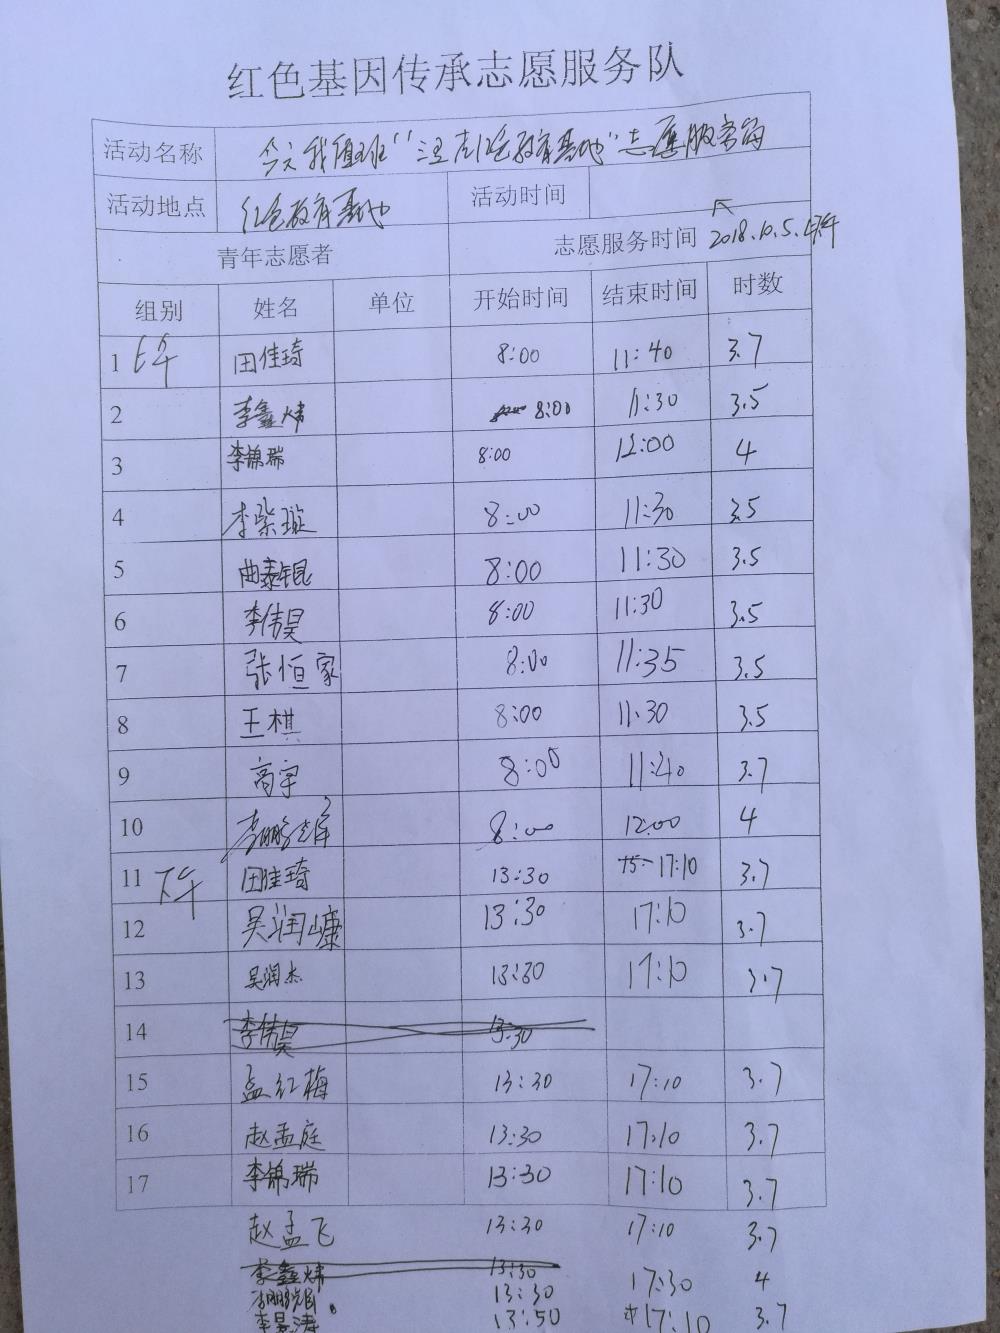 红色基因传承志愿服务队
活动名称 今天我值班"红色教育基地"志愿服务岗
活动地点 红色教育基地 活动时间
青年志愿者 志愿服务时间 2018.10.5.
组别 姓名 单位 开始时间 结束时间 时数
1 上午 田佳琦 8:00 11:40 3.7
2 李鑫炜 8:00 11:30 3.5
3 李锦瑞 8:00 12:00 4
4 李紫璇 8:00 11:30 3.5
5 曲泰锟 8:00 11:30 3.5
6 李伟昊 8:00 11:30 3.5
7 张恒家 8:00 11:35 3.5
8 王棋 8:00 11:30 3.5
9 高宇 8:00 11:40 3.7
10 8:00 12:00 4
11 下午 田佳琦 13:30 17:10 3.7
12 吴润嵻 13:30 17:10 3.7
13 吴润杰 13:30 17:10 3.7
14 李伟昊 13:30
15 孟红梅 13:30 17:10 3.7
16 赵孟庭 13:30 17:10 3.7
17 李锦瑞 13:30 17:10 3.7
赵孟飞 13:30 17:10 3.7
李鑫炜 13:30
13:30 17:30 4
李昊涛 13:50 17:10 3.7